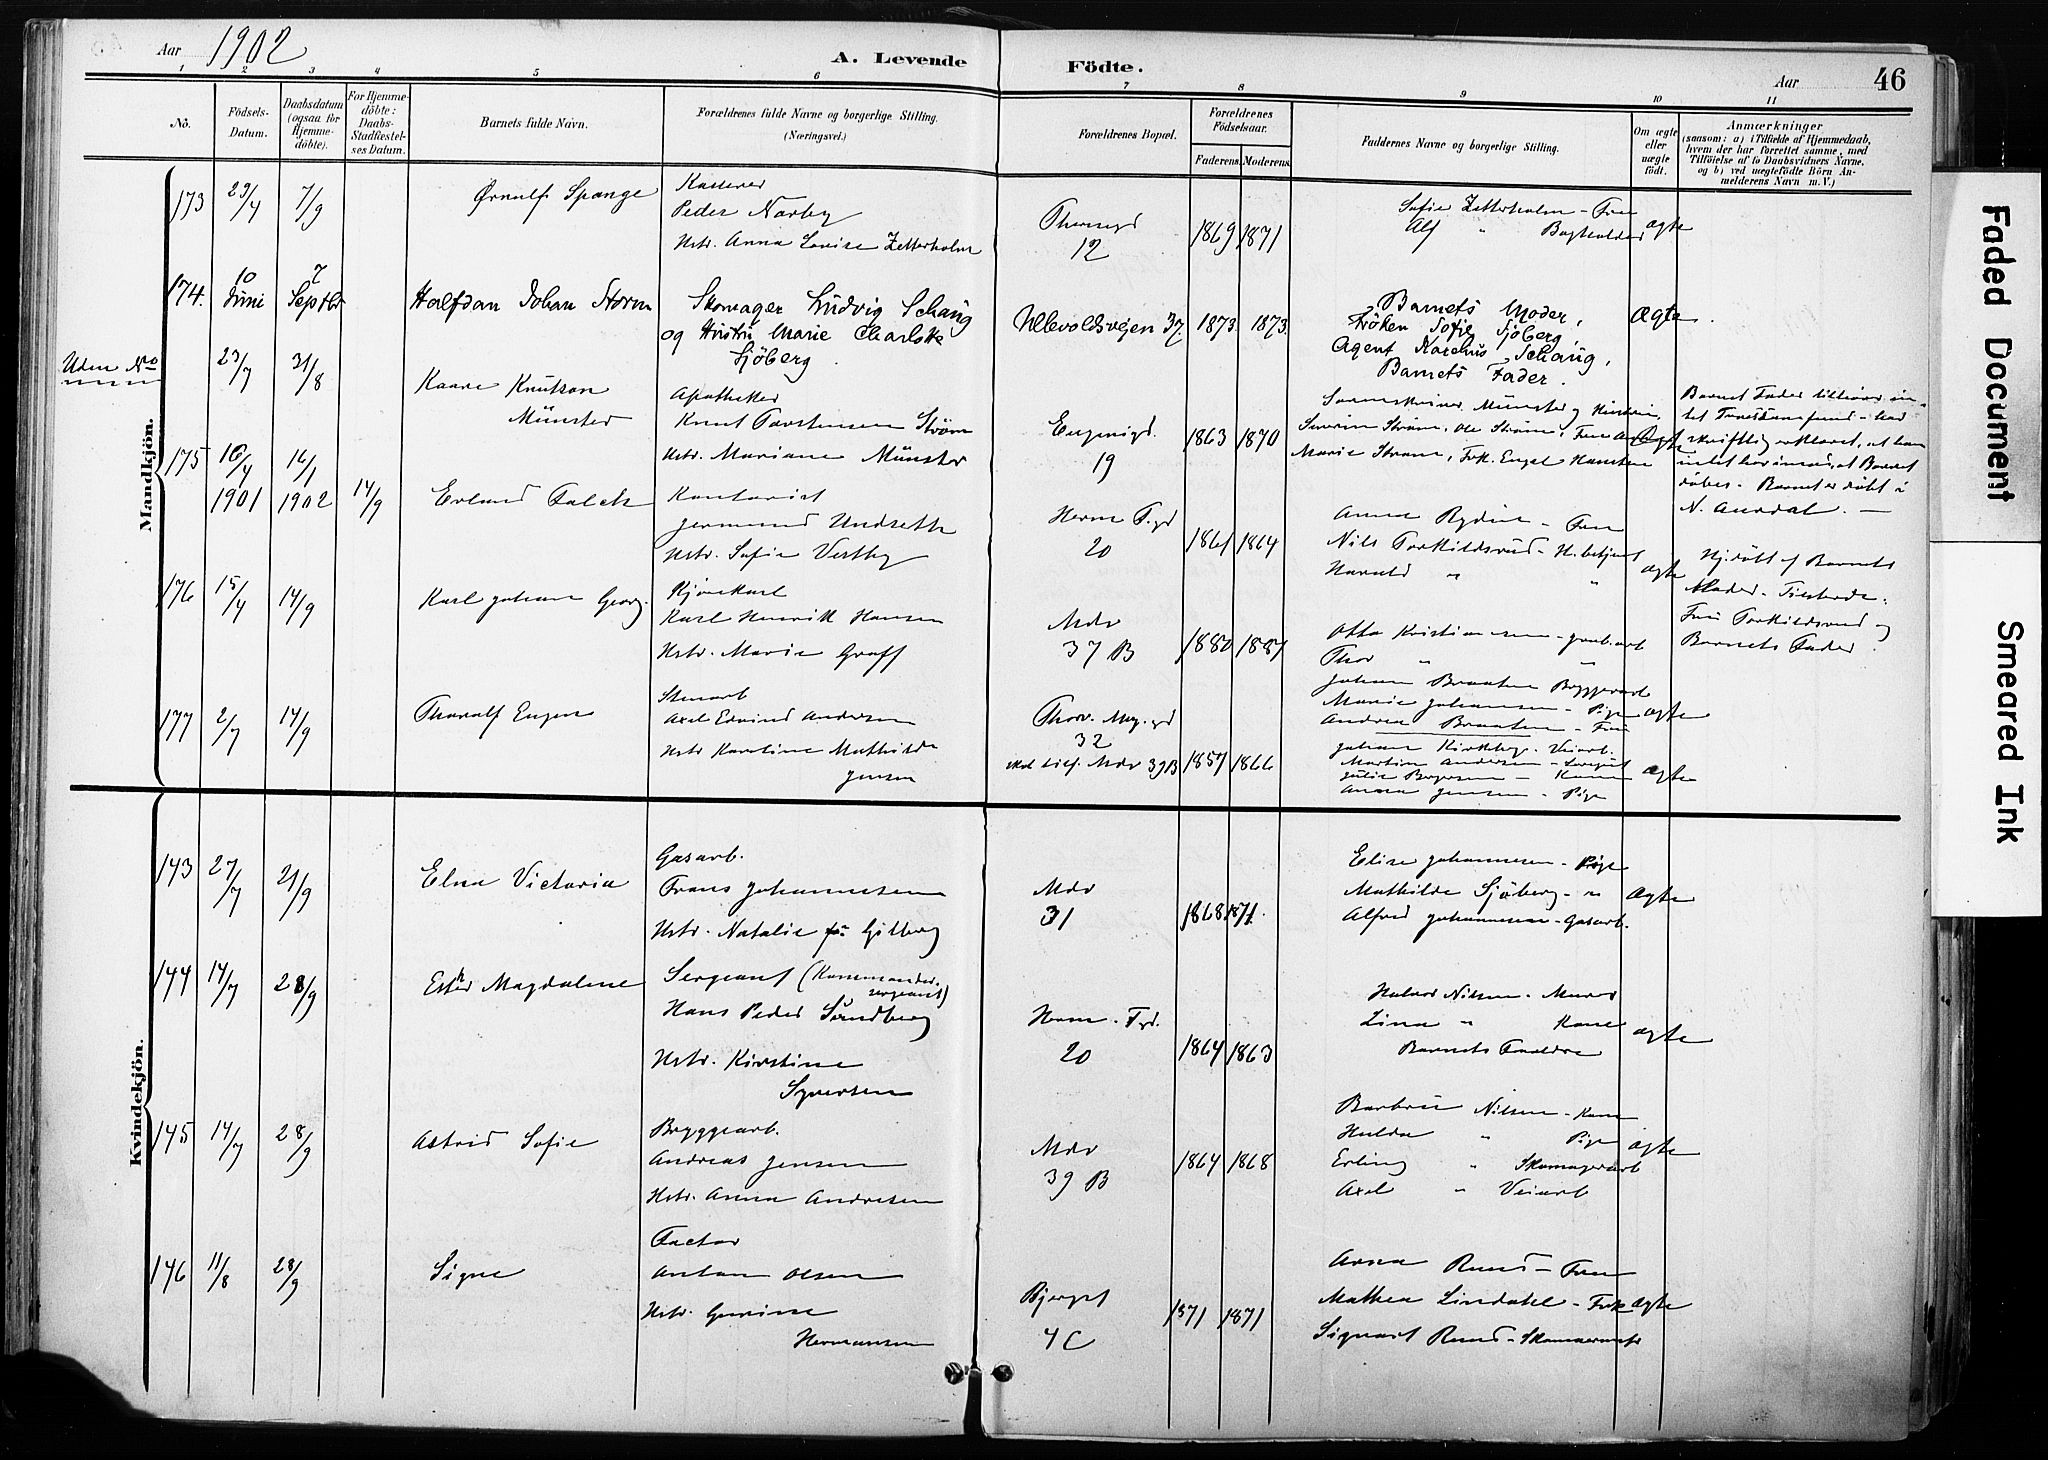 Aar 1902
A. Levende Födte.
Aar 46
1 2 3 4 5 6 7 8 9 10 11
No.
Födsels-Datum.
Daabsdatum (ogsaa for Hjemmedöbte).
For Hjemmedöbte: Daabs-Stadfæstelses Datum.
Barnets fulde Navn.
Forældrenes fulde Navne og borgerlige Stilling.
(Næringsvei.)
Forældrenes Bopæl.
Forældrenes Födselsaar.
Faderens. Moderens.
Faddernes Navne og borgerlige Stilling.
Om ægte eller uægte födt.
Anmærkninger
(saasom: a) i Tilfælde af Hjemmedaab,
hvem der har forrettet samme, med
Tilföielse af to Daabsvidners Navne,
og b) ved uægtefödte Börn Anmelderens Navn m. V.)
Mandkjön.
173 29/4 7/9 Ørnulf Spange
Kasserer
Peder Narby
Hstr. Anna Lovise Zetterholm
12 1869 1871
Sofie Zetterholm - Frue
Alf " Bogholder
ægte
174. 10 Juni 7 Septbr Halfdan Johan Storm
Skomager Ludvig Schaug
og Hustru Marie Charlotte
Sjöberg
Ullevoldsvejen 37 1873. 1873.
Barnets Moder,
Fröken Sofie Sjöberg,
Agent Schaug,
Barnets Fader.
Ægte
Uden No
23/7 31/8 Kaare Knutson
Münster
Apotheker
Knut Torstensen Strøm
Hstr. Mariane Münster
Eugenigd.
19 1863 1870
Sorenskriver Münster og Hustru,
Severin Strøm, Ole Strøm, Frue
Marie Strøm, Frk. Engel Hansteen
Barnet Fader tilhører in-
tet Troessamfund - har
skriftlig erklæret, at han
intet har imod, at Barnet
döbes - Barnet er döbt i
N. Aurdal. -
175 10/4 1901 16/1 1902 14/9 Erland Falck
Kontorist
Jermund Undseth
Hstr. Sofie Vestby
Herm Fgd
20 1861 1864
Anna Rydin - Frue
Nils Torkildsrud - H.betjent
Harald " "
ægte
Hj.döbt af Barnets
Moder -
Fru Torkildsrud og
Barnets Fader.
176 15/4 14/9 Karl Johan Georg.
Kjørekarl
Karl Henrik Hansen
Hstr. Marie Graff
Mdv
37 B 1880 1881
Otto Kristiansen
Thor " "
Johan Braaten Byggearb
Marie Johansen - Pige
Andrea Braaten - Frue
ægte
177 2/7 14/9 Thoralf Eugen
Stenarb
Axel Edvind Andersen
Hstr Karoline Mathilde
Jensen
Thorv. Mey. gd
32
Mdv 39B 1857 1866
Johan Kirkeberg. Veiarb.
Martin Andersen - Sersjant
Julie Borgersen - Kone
Anna Jensen - Pige
ægte
Kvindekjön.
143 27/7 21/9 Elna Victoria
Gasarb.
Frans Johannesen
Hstr. Natalie f. Gilberg
Mdv
31 1868 1871.
Elise Johannesen - Pige
Mathilde Sjöberg - "
Alfred Johannesen - Gasarb.
ægte
144 14/7 28/9 Ester Magdalene
Sergeant (Kommander
sergeant)
Hans Peder Sundberg
Hstr. Kirstine
Syversen
Herm. Fgd.
20 1864 1863
Halvor Nilsen - Murer
Lina " Kone
Barnets Forældre
ægte
145 14/7 28/9 Astrid Sofie
Bryggearb.
Andreas Jensen
Hstr. Anna Andresen
Mdv
39 B 1864 1868
Barbro Nilsen - Kone
Hulda " Pige
Erling " Skomagerarb
Axel " Veiarb
ægte
146 11/8 28/9 Signe
Factor
Anton Olsen
Hstr. Gurine
Hermansen
Bjerget
4C 1871 1871
Anna Ruud - Frue
Mathea Lindahl - Frk
Sigvart Ruud - Skomagermstr
ægte
Faded Document
Smeared Ink